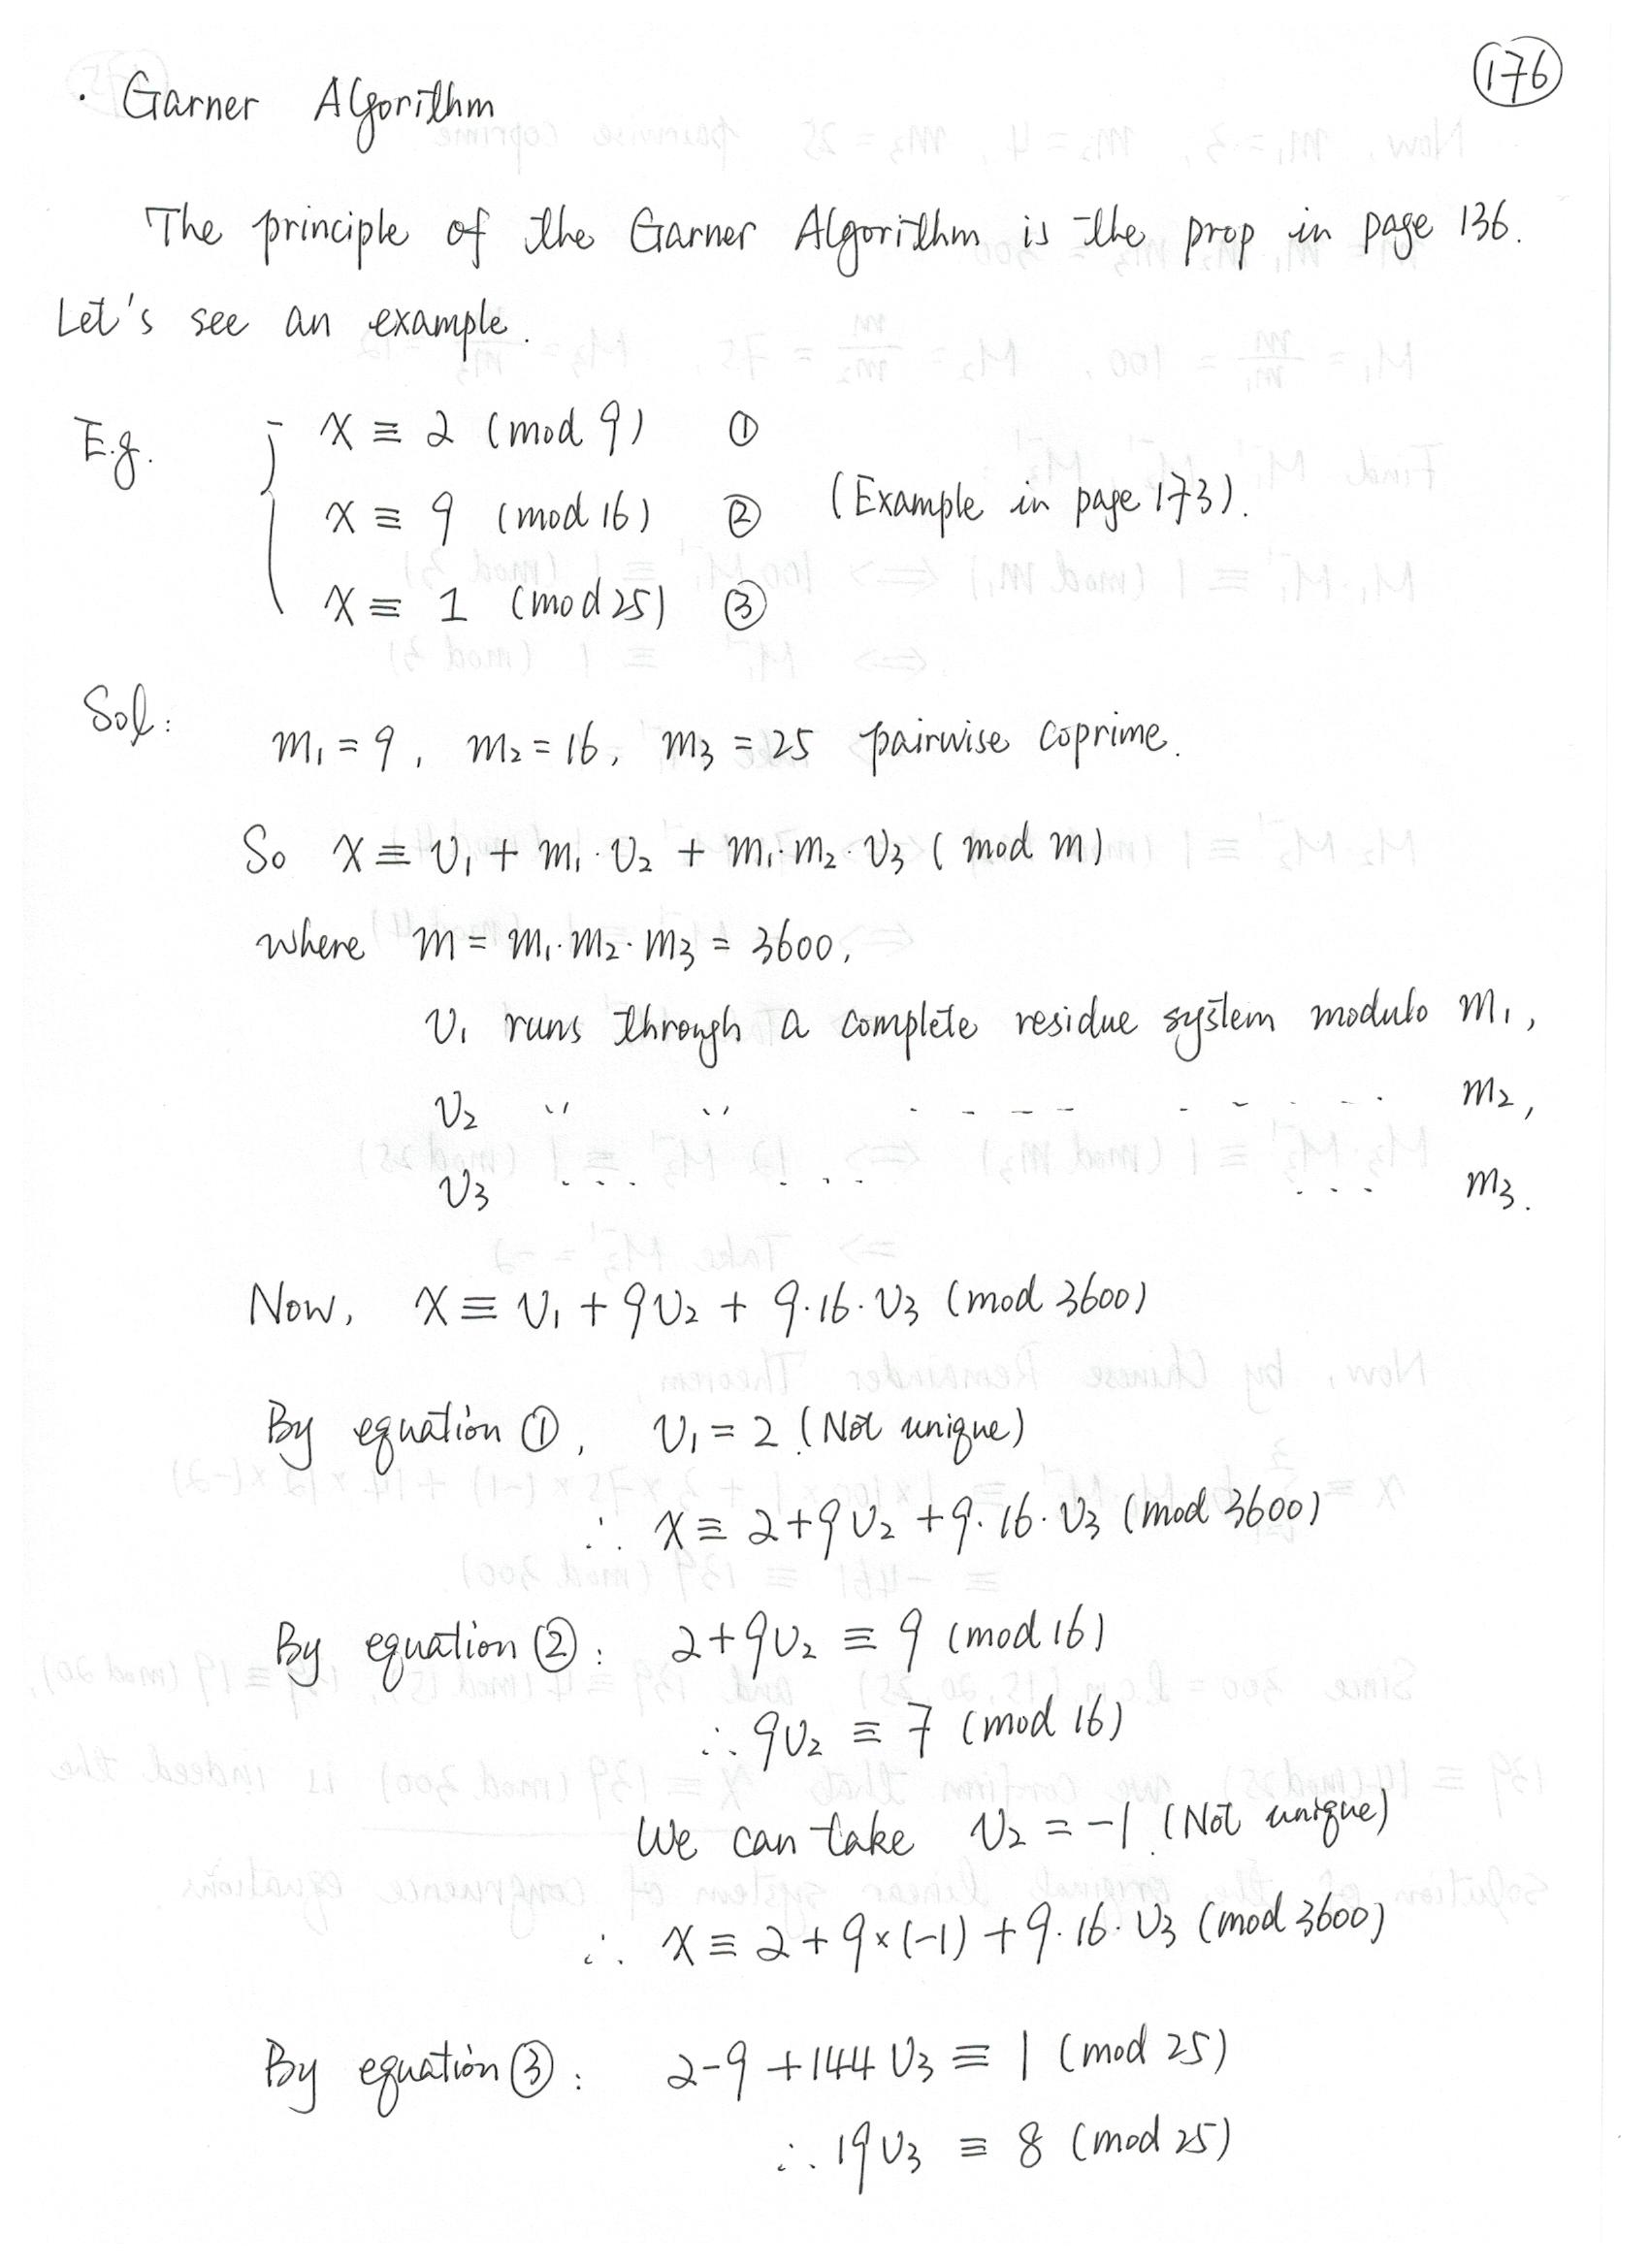 176
· Garner Algorithm
The principle of the Garner Algorithm is the prop in page 136.
Let's see an example.
E.g. { x ≡ 2 (mod 9) ①
x ≡ 9 (mod 16) ② (Example in page 173).
x ≡ 1 (mod 25) ③
Sol: m₁ = 9, m₂ = 16, m₃ = 25 pairwise coprime.
So x ≡ v₁ + m₁·v₂ + m₁·m₂·v₃ (mod m)
where m = m₁·m₂·m₃ = 3600,
v₁ runs through a complete residue system modulo m₁,
v₂ " " . - - - - - - . . . m₂,
v₃ ... .... ... m₃.
Now, x ≡ v₁ + 9v₂ + 9·16·v₃ (mod 3600)
By equation ①, v₁ = 2 (Not unique)
∴ x ≡ 2+9v₂ +9·16·v₃ (mod 3600)
By equation ②: 2+9v₂ ≡ 9 (mod 16)
∴ 9v₂ ≡ 7 (mod 16)
We can take v₂ = -1 (Not unique)
∴ x ≡ 2+9×(-1)+9·16·v₃ (mod 3600)
By equation ③: 2-9+144v₃ ≡ 1 (mod 25)
∴ 19v₃ ≡ 8 (mod 25)